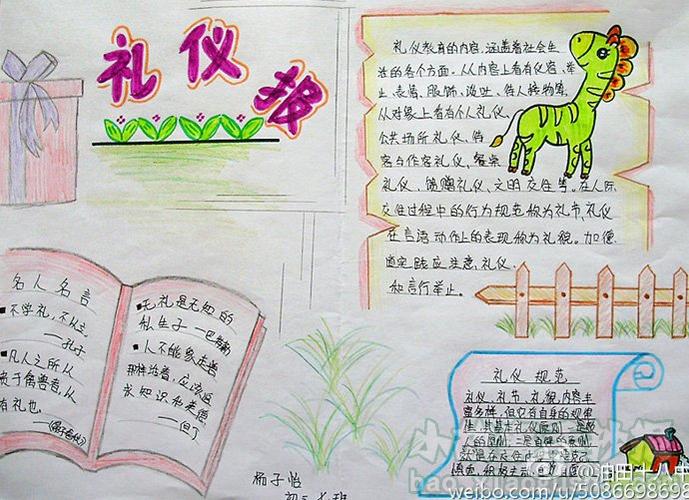 礼仪报
礼仪教育的内容,涵盖着社会生
活的各个方面。从内容上看有仪容、举
止、表情、服饰、谈吐、待人接物等,
从对象上看有个人礼仪、
公共场所礼仪、待
客与作客礼仪、餐桌
礼仪、馈赠礼仪、文明交往等。在人际
交往过程中的行为规范称为礼节,礼仪
在言语动作上的表现称为礼貌。加德
道实践应注意,礼仪、
和言行举止。
名人名言
不学礼,不以立。
——孔子
凡人之所以
贵于禽兽者,以
有礼也。
——《晏子春秋》
无礼是无知的
私生子 ——巴特勒
人不能象走兽
那样活着,应该追
求知识和美德
——但丁
礼仪 规范
礼仪、礼节、礼貌,内容丰
富多样,但它有自身的规律
性,其基本礼仪原则:一是敬
人的原则;二是自律的原则,
就是在交往
子怡
初
班
@油田十八中
weibo.com/u/5086698698